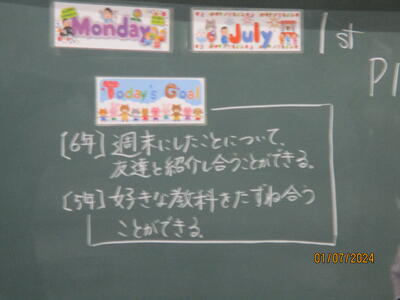 Monday July 1st
Pl
Today's Goal
[6年] 週末にしたことについて、
友達と紹介し合うことができる。
[5年] 好きな教科をたずね合う
ことができる。
01/07/2024